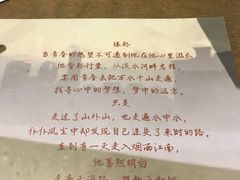 缘起
当青春的热望不可遏制地在他心里滋长
他背起行囊，从淡水河畔启程，
要用青春去把万水千山走遍，
找寻心中的梦想，梦中的远方。
只是
走过了山外山，也走遍水中水，
仆仆风尘中却发现自己迷失了来时的路。
直到有一天走入烟雨江南，
他蓦然明白